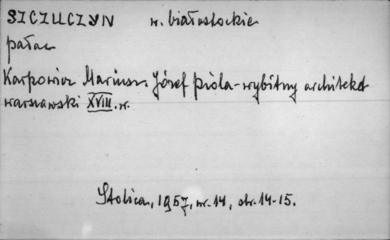 SZCZUCZYN w. białostockie
pałac
Karpowicz Mariusz. Józef Piola - wybitny architekt
warszawski XVIII. w.
Stolica, 1957, nr. 14, str. 14-15.